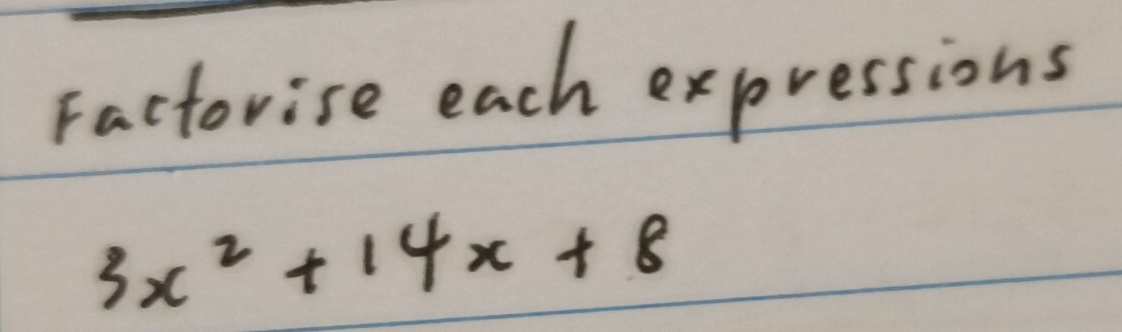 Factorise each expressions
3x² + 14x + 8